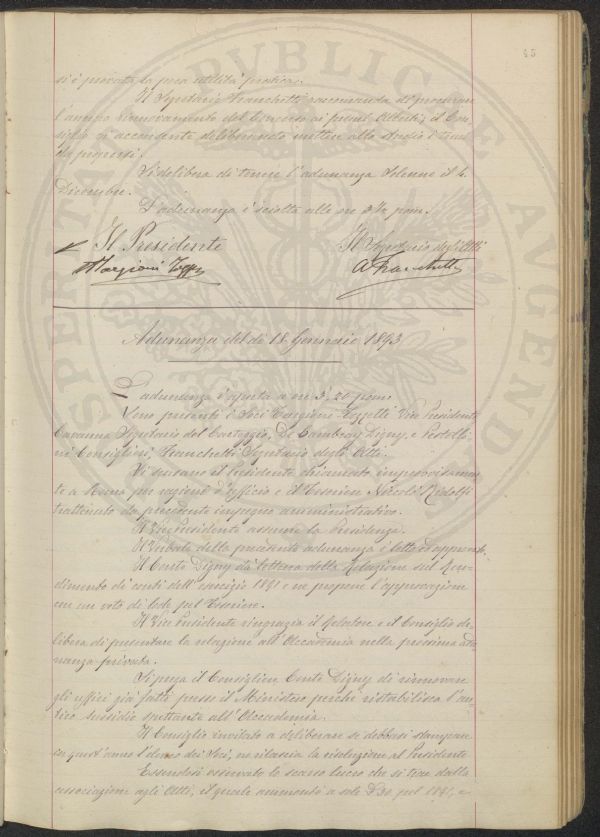 45
si è provata la sua utilità pratica.
Il Segretario Franchetti raccomanda di procurare
l'annuo rinnovamento del Concorso ai premi Alberti; il Con-
siglio vi acconsente deliberando mettere allo studio i temi
da proporsi.
Si delibera di tenere l'adunanza solenne il 4
Dicembre.
L'adunanza è sciolta alle ore 3 ½ pom.
Il Presidente
Il Segretario degli Atti
Targioni Tozz
A Franchetti
Adunanza del dì 18 Gennaio 1893
L'adunanza è aperta a ore 3,20 pom.
Sono presenti i Soci Targioni-Tozzetti Vice Presidente
Caruana Segretario del Carteggio, De Cambray Digny, e Pestelli-
ni Consiglieri, Franchetti Segretario degli Atti.
Si scusano il Presidente chiamato improvvisamen-
te a Roma per ragione d'ufficio e il Tesoriere Niccolò Ridolfi
trattenuto da precedente impegno amministrativo.
Il Vice Presidente assume la Presidenza.
Il Verbale della precedente adunanza è letto ed approvato.
Il Conte Digny dà lettura della Relazione sul Ren-
dimento di conti dell'esercizio 1891 e ne propone l'approvazione
con un voto di lode pel Tesoriere.
Il Vice Presidente ringrazia il Relatore e il Consiglio de-
libera di presentare la relazione all'Accademia nella prossima adu-
nanza privata.
Si prega il Consigliere Conte Digny di rinnovare
gli uffici già fatti presso il Ministero perchè ristabilisca l'an-
tico sussidio spettante all'Accademia.
Il Consiglio invitato a deliberare se debbasi stampare
in quest'anno l'elenco dei Soci, ne rilascia la risoluzione al Presidente
Essendosi osservato lo scarso lucro che si trae dalla
associazione agli Atti, il quale ammontò a sole £ 30 pel 1891, e